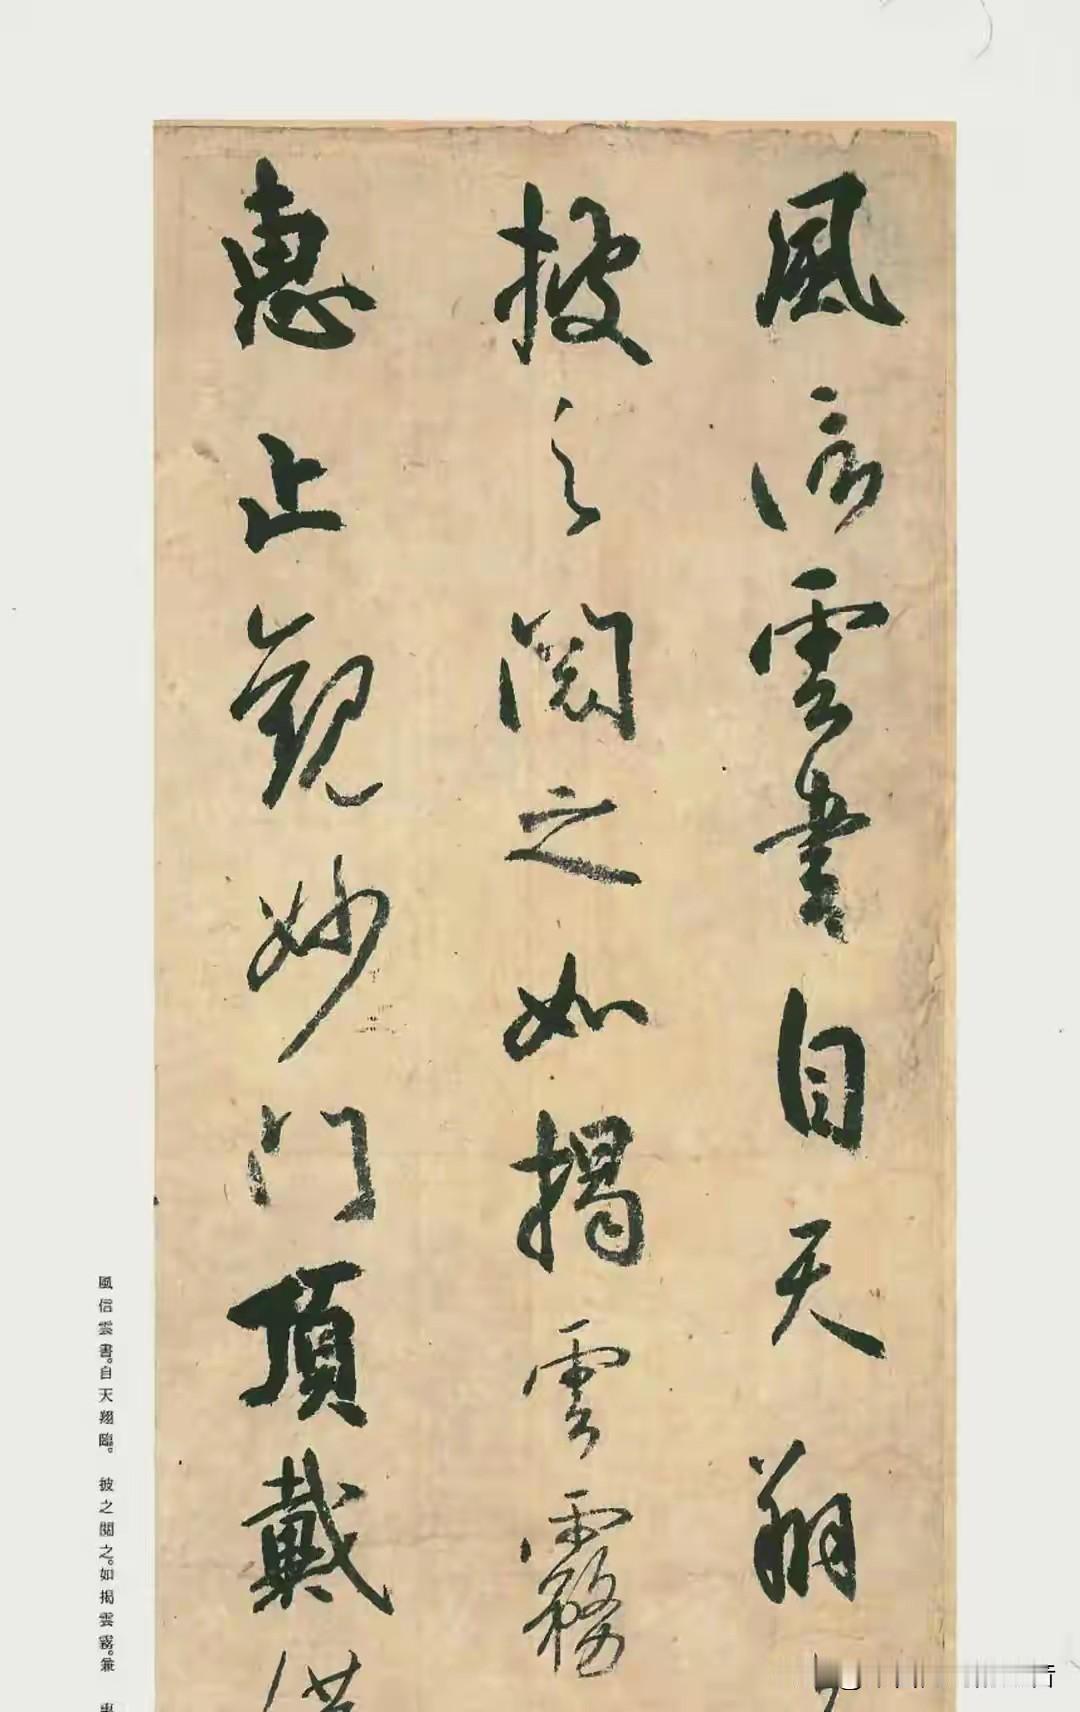 風信雲書自天翔
披之閱之如揭雲霧
惠止觀妙門頂戴供
風信雲書。自天翔臨。 披之閱之。如揭雲霧。兼 惠